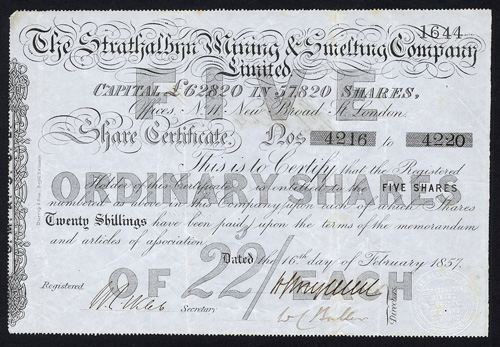 1644
The Strathalbyn Mining & Smelting Company
Limited.
CAPITAL £62820 IN 57,820 SHARES,
Offices No. 4 New Broad St. London.
Share Certificate, Nos 4216 to 4220
FIVE
This is to Certify that the Registered
Holder of this Certificate is entitled to the FIVE SHARES
ORDINARY SHARES
numbered as above in this Company, upon each of which Shares
Twenty Shillings have been paid, upon the terms of the memorandum
and articles of association.
Dated the 16th day of February 1857.
OF 22/ EACH
Registered
Secretary
Directors